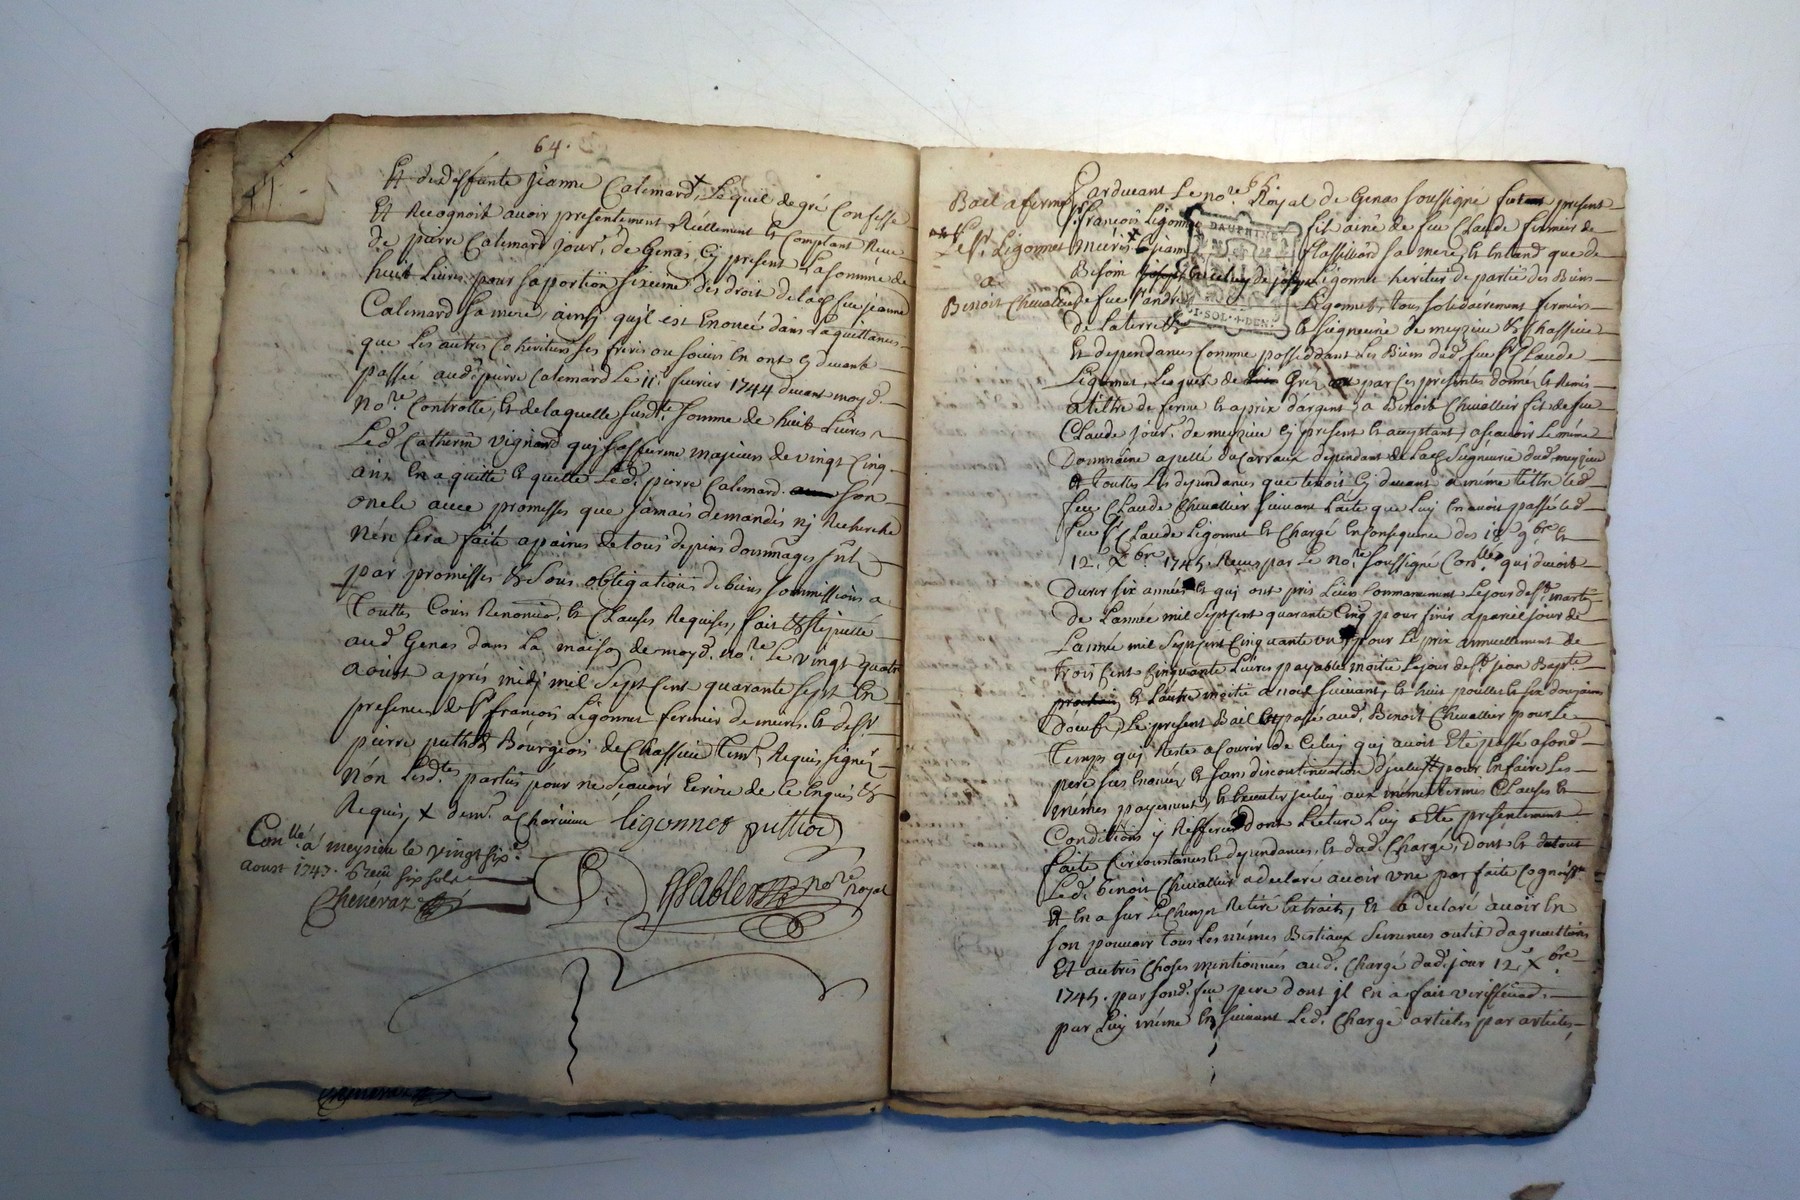 64.
Et de deffunte Jeanne Calemard + Lequel de gré Confesse
Et Recognoit avoir presentement Réellement et Comptant Reçue
de pierre Calemard jour.r de Genas, Cy present La somme de
huit Livres pour sa portion sixeme des droit de lad. feue jeanne
Calemard sa mere, ainsy quil est Enoncé dans la quittances
que Les autres Coheritiers ses freres ou soeurs En ont cy devant
passée aud. pierre Calemard Le 11e. fevrier 1744 devant moyd.
No.re Controllé, et de laquelle susd.te somme de huit Livres
Led. Catherin vignard quj sassurme majeur de vingt Cinq
ans En aquitte et quitte Led. pierre Calemard son
oncle avec promesses que jamais demandes nj Recherche
Nen sera faite apaines de tous depens dommages
par promesses et sous obligations de biens sommissions a
Touttes Cours Renonciãõ. et Clauses Requises, fait et stipullé
aud. Genas dans La maison de moyd. no.re Le vingt quatre
aoust aprés midj mil Sept Cent quarante sept En
presences de Sr. françois Ligonnet fermier de mures et de Sr.
pierre puthod Bourgeois de Chassieu Tem. Requis signés
Non Lesd.tes parties pour ne Scavoir Ecrire de ce Enquis et
Requis, X dem.t a Charvieu ligonnet puthod
Con.llé a meysieu le vingt six.e
aoust 1747. Receu six sols
Chenéraz
Sablier no.re royal
65
Bail a ferme
Le Sr. Ligonnet
a
Benoit Chevallier
Pardevant Le no.re Royal de Genas soussigné present
Sr. françois Ligonnet fils ainé de feu Claude fermier de
mures
DAUPHINE
sa mere, et Entand que de
Besoin Ligonnet heritier de partie des Biens
de feu Sr. andré Ligonnet, tous solidairement fermiers
I·SOL·4·DEN·
de La terre et seigneurie de meyzieu et Chassieu
Et dependances Comme posseddant Les Biens dud. feu Sr. Claude
Ligonnet, Lesquels de Gréz par Ces presentes donnés et Remis
a tiltre de ferme et a prix dargent, à Benoit Chevallier fils de feu
Claude jour.r de meyzieu cy present et acceptant, ascavoir Le même
Dommaine apellé du Carraux dependant de Lad. Seigneurie dud. meyzieu
et touttes Les dependances que tenoit Cy devant a même tiltre led.
feu Claude Chevallier suivant Lacte que Luy En avoit passé led.
feu Sr. Claude Ligonnet et Chargé En Consequence des 18e. 9.bre et
12e. X.bre 1745. Reçus par Le no.re soussigné Con.llé quj devoit
Durer six années et quj ont pris Leurs Commancement Le jour de St. martin
de Lannée mil Sept Cent quarante Cinq pour finir a pareil jour de
Lannée mil Sept Cent Cinquante un, pour Le prix annuellement de
trois Cent Cinquante Livres payables moitié Le jour de St. jean Bapte.
prochain et Lautre moitié a noel suivant, et huit poulles et six douzaines
Doeufs, Le present Bail passé aud. Benoit Chevallier pour Le
Temps quj Reste a Courir de Celuy quj avoit Eté passé a fond.
pere sus Enoncé, et sans discontinuation pour En faire Les
mêmes payement, et Executer jceluy aux mêmes termes Clauses et
Conditions y Refferées dont Lecture Luy a Eté presentement
faitte Circonstances et dependances, et dud. Chargé, Dont et du tout
Led. benoit Chevallier a declaré avoir une parfaite Cognoiss.ce
Et En a sur Le Champ Retiré Extraits, Et a declaré avoir En
son pouvoir tous Les mêmes Bestiaux semences outils dagriculture
Et autres Choses mentionnées aud. Chargé dud. jour 12e. X.bre
1745. par fond. feu pere dont jl en a fait veriffica.õn
par Luy même En suivant Led. Chargé articles par articles,